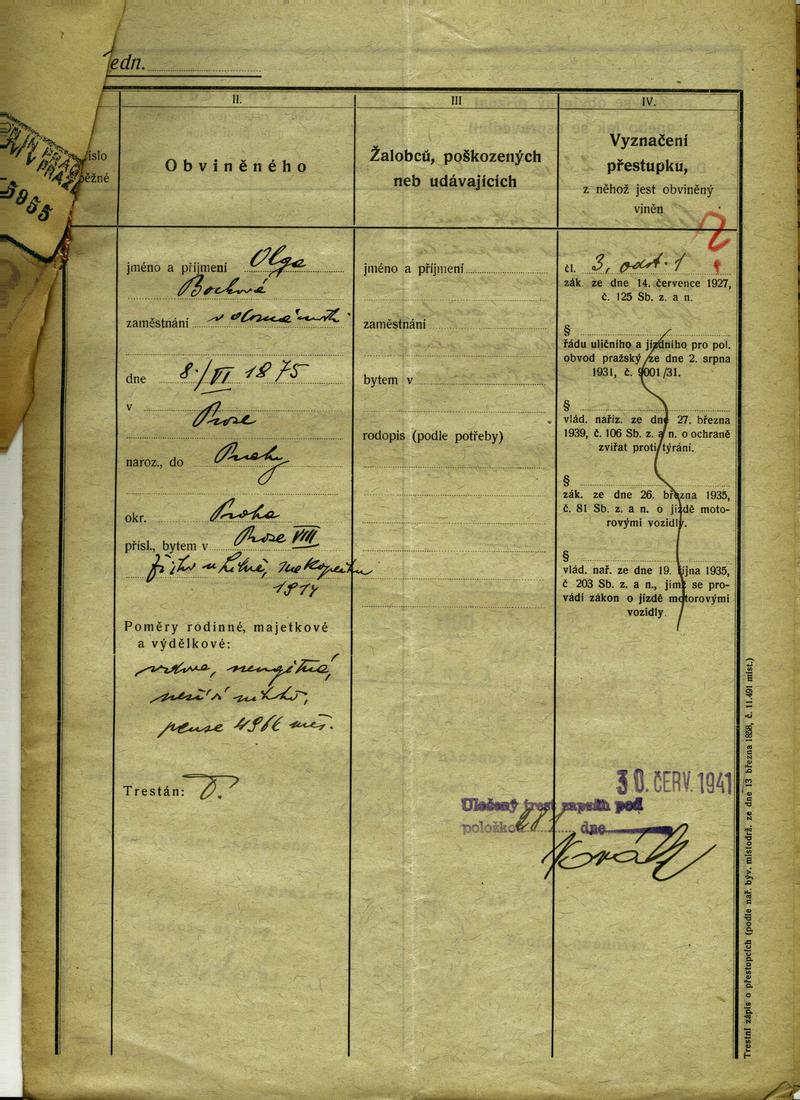 edn.
II.
III
IV.
íslo
ěžné
Obviněného
Žalobců, poškozených
neb udávajících
Vyznačení
přestupku,
z něhož jest obviněný
viněn
5955
jméno a příjmení Olga
Bocková
zaměstnání v domácnosti
dne 8/VI 1875
v
Praze
naroz., do Prahy
okr. Praha
přísl., bytem v Praze VIII
1914
Poměry rodinné, majetkové
a výdělkové:
vdova, nemajetná,
pense 4966
Trestán:
jméno a příjmení
zaměstnání
bytem v
rodopis (podle potřeby)
čl. 3, odst. 1
zák ze dne 14. července 1927,
č. 125 Sb. z. a n.
§
řádu uličního a jízdního pro pol.
obvod pražský ze dne 2. srpna
1931, č. 9001/31.
§
vlád. naříz. ze dne 27. března
1939, č. 106 Sb. z. a n. o ochraně
zvířat proti týrání.
§
zák. ze dne 26. března 1935,
č. 81 Sb. z. a n. o jízdě moto-
rovými vozidly.
§
vlád. nař. ze dne 19. října 1935,
č 203 Sb. z. a n., jímž se pro-
vádí zákon o jízdě motorovými
vozidly.
30. ČERV. 1941
Uložený trest zapsán pod
položkou dne
Novák
Trestní zápis o přestupcích (podle nař. býv. místodrž. ze dne 13 března 1858, č. 11.491 míst.)